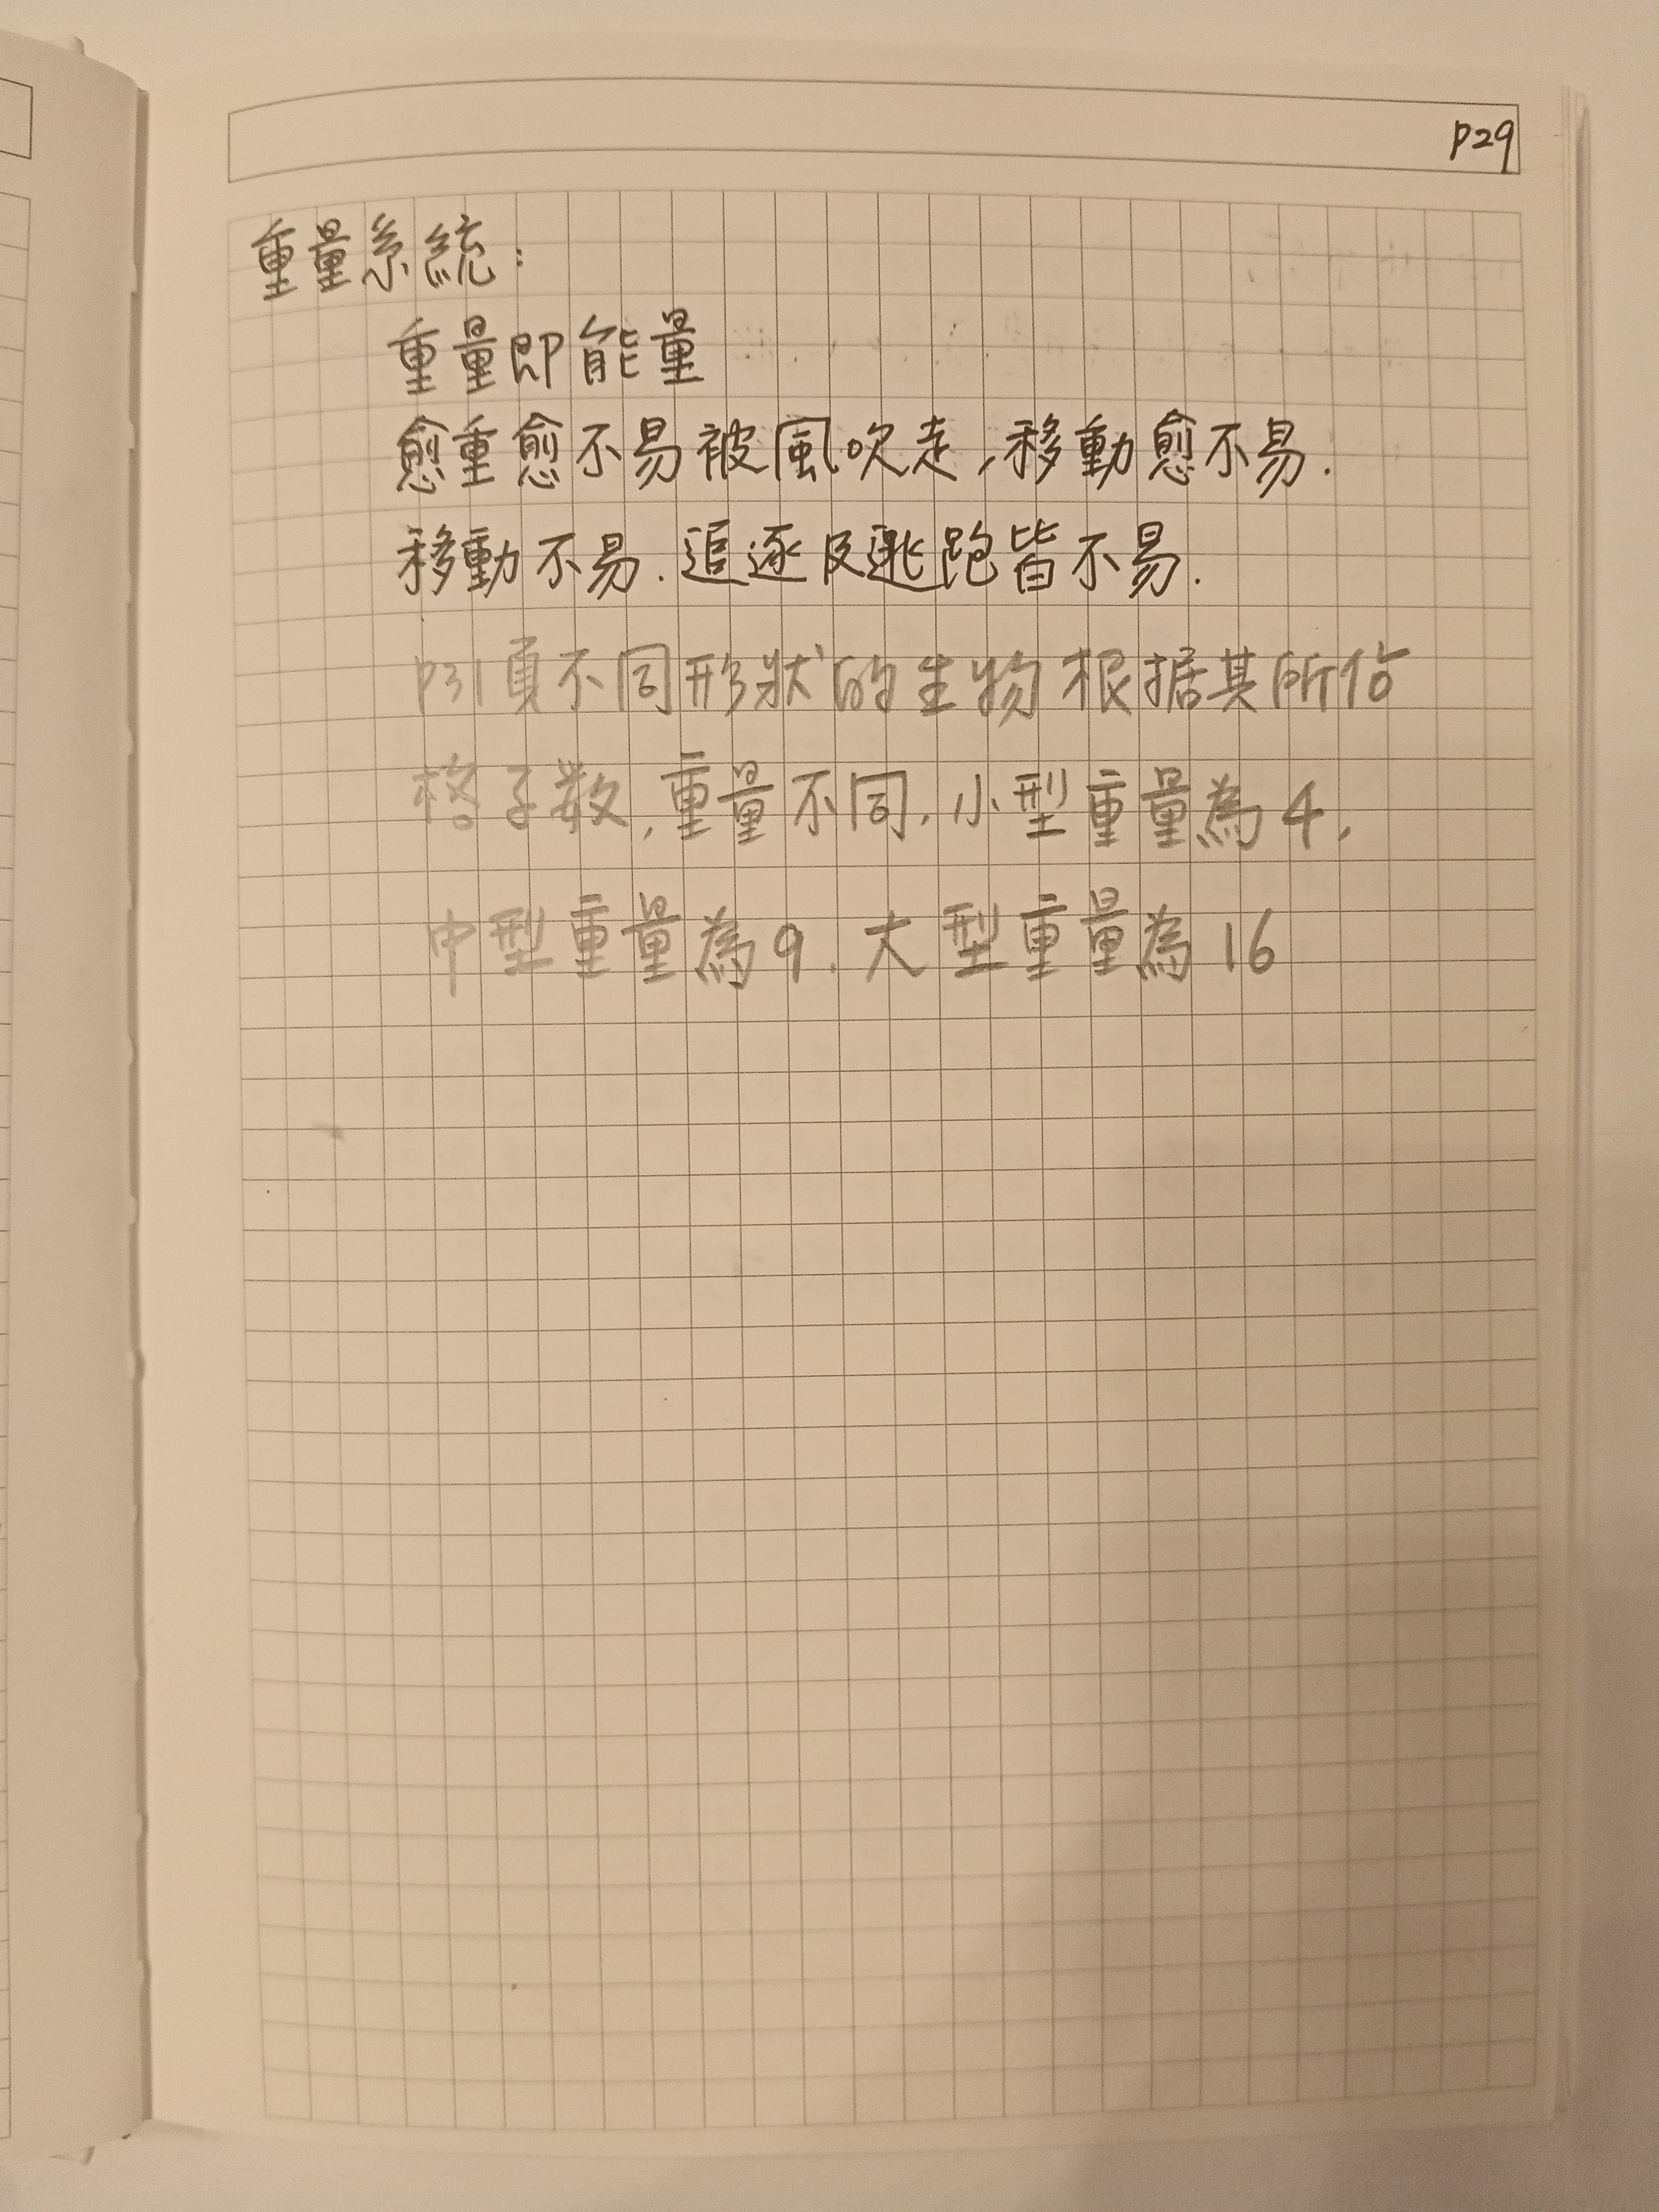 P29
重量系統:
重量即能量
愈重愈不易被風吹走,移動愈不易.
移動不易.追逐及逃跑皆不易.
P31頁不同形狀的生物根据其所佔
格子数,重量不同.小型重量為4,
中型重量為9.大型重量為16